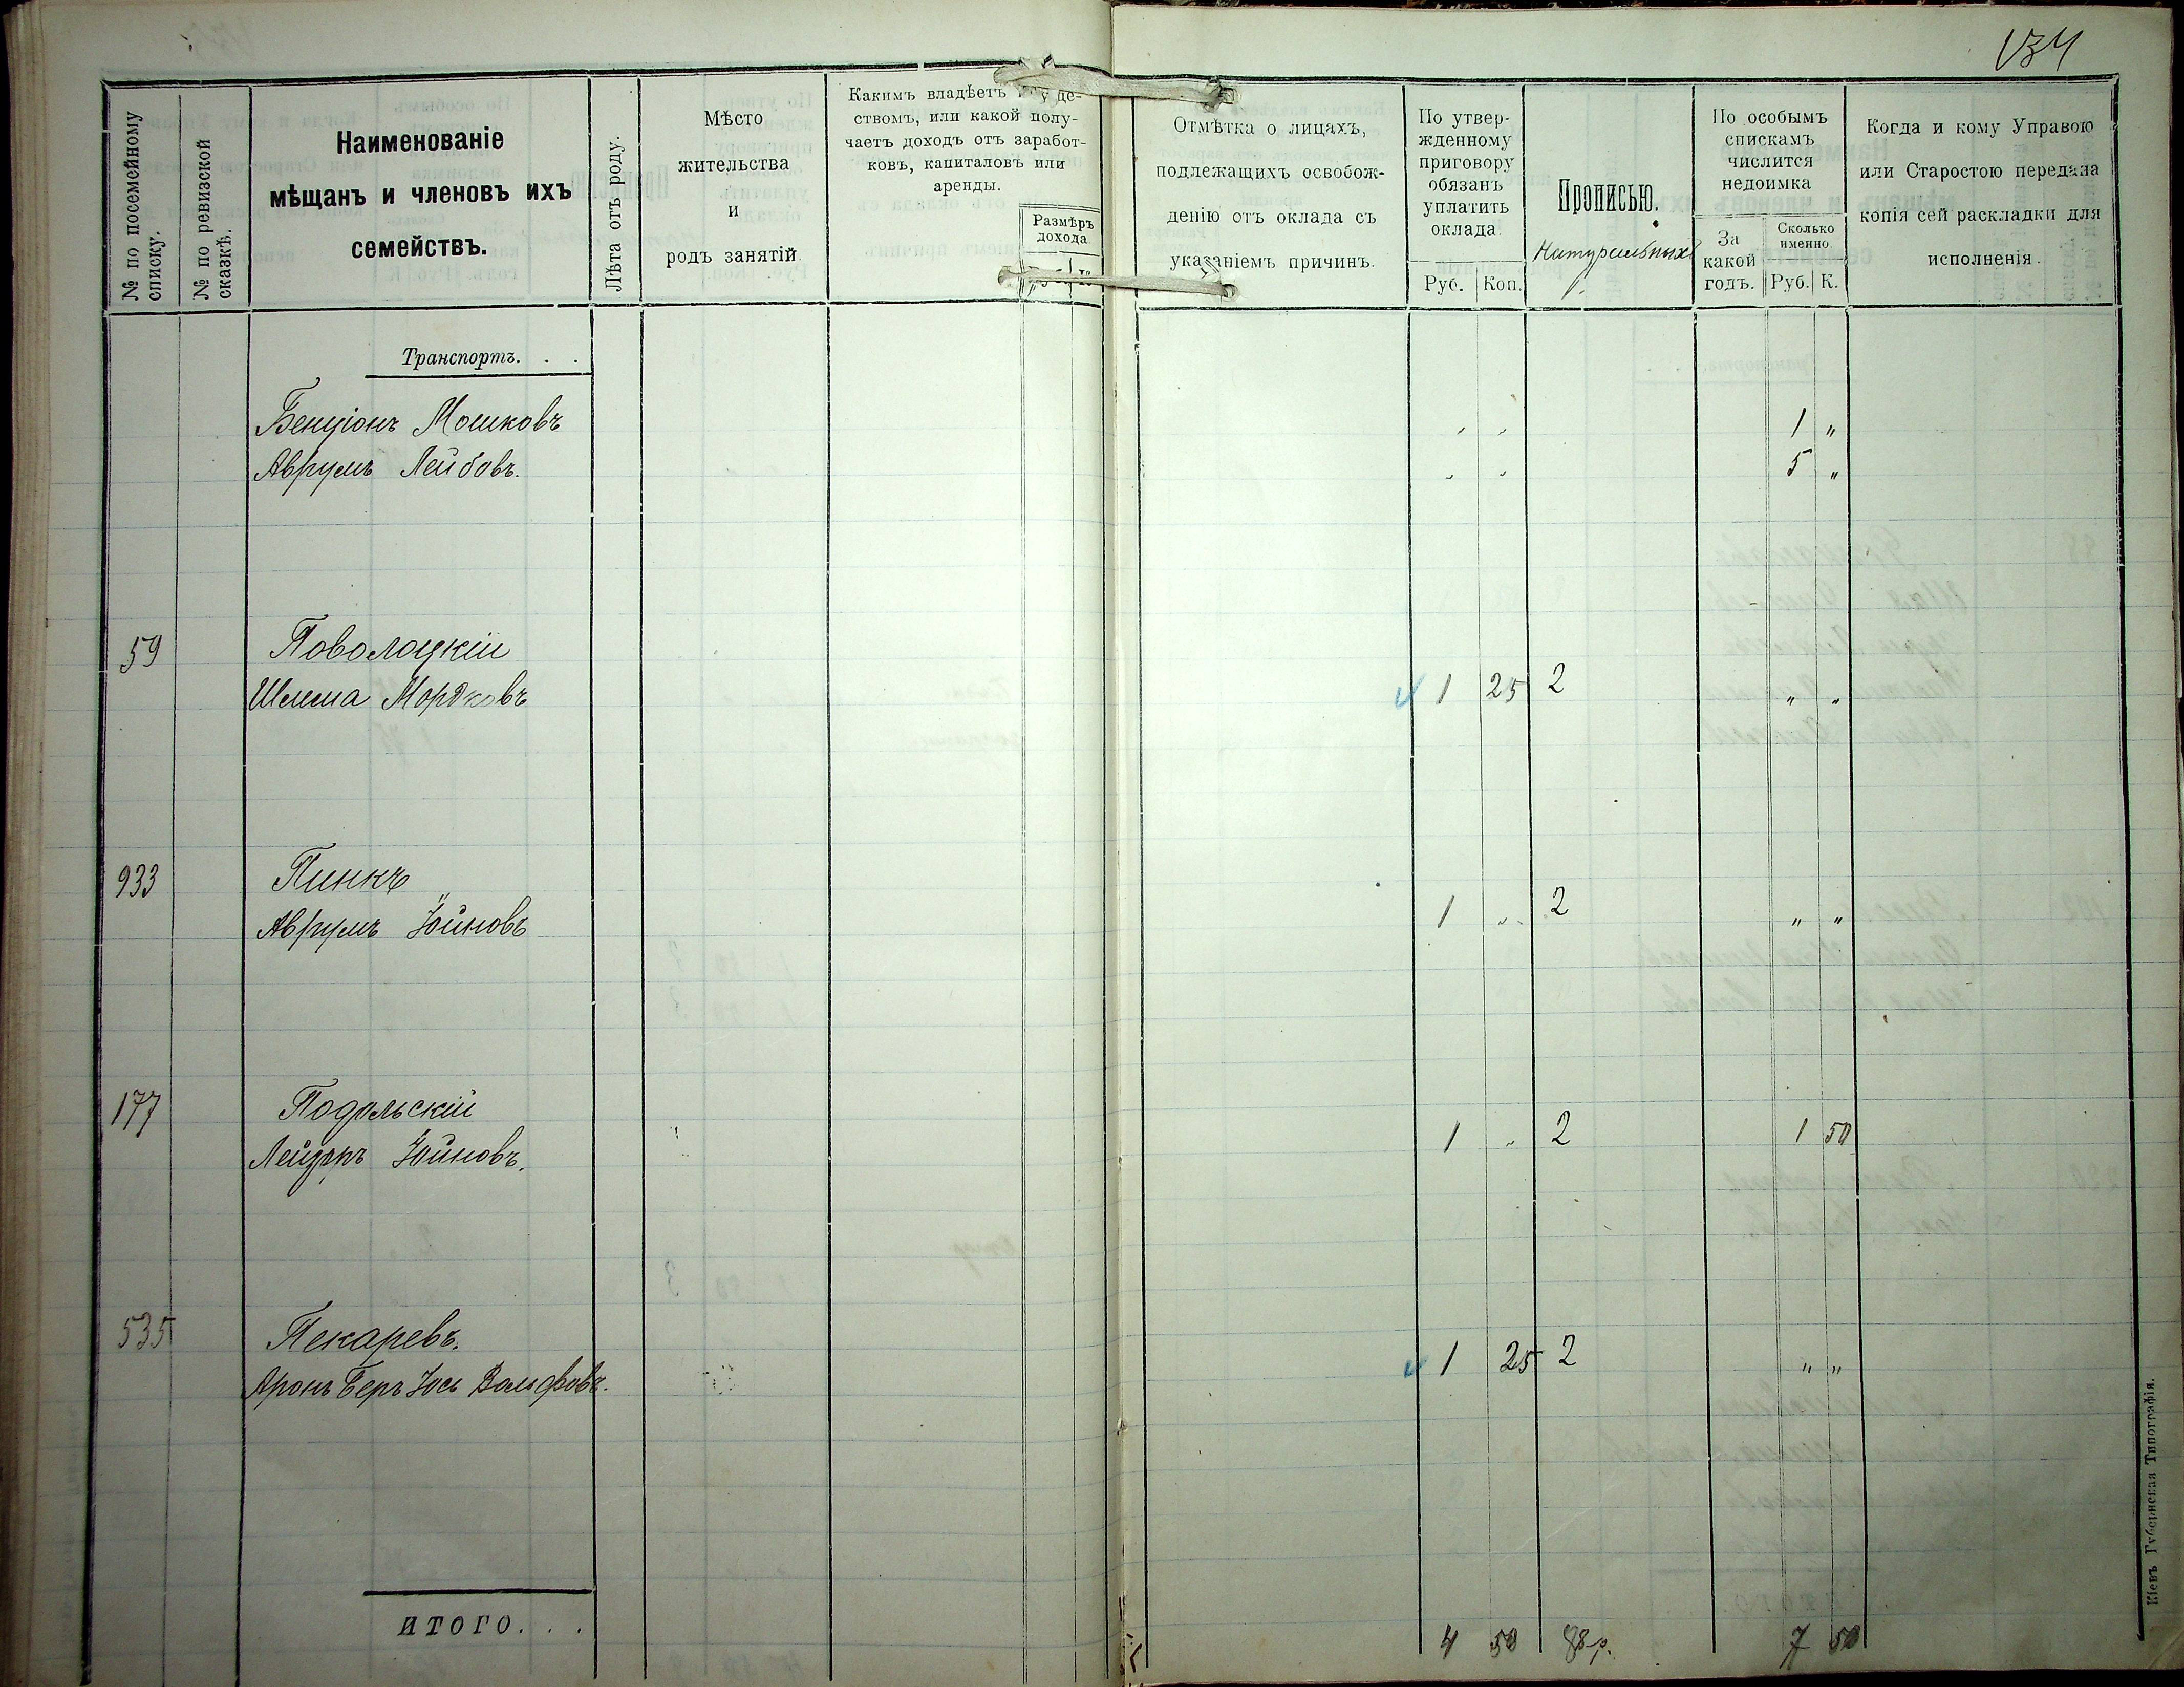 134
№ по посемейному списку.
№ по ревизской сказкѣ.
Наименованіе
мѣщанъ и членовъ ихъ
семействъ.
Лѣта отъ роду.
Мѣсто
жительства
и
родъ занятій
Какимъ владѣетъ
ствомъ, или какой полу-
чаетъ доходъ отъ заработ-
ковъ, капиталовъ или
аренды.
Размѣръ
дохода
Отмѣтка о лицахъ,
подлежащихъ освобож-
денію отъ оклада съ
указаніемъ причинъ.
По утвер-
жденному
приговору
обязанъ
уплатить
оклада
Руб. Коп.
Прописью.
Натуральных
По особымъ
спискамъ
числится
недоимка
За
какой
годъ.
Сколько
именно.
Руб. К.
Когда и кому Управою
или Старостою передана
копія сей раскладки для
исполненія.
Транспортъ. . .
Бенціонъ Мошковъ " " 1 "
Аврумъ Лейбовъ. " " 5 "
59 Поволоцкій
Шлема Мордковъ 1 25 2 " "
933 Пинкъ
Аврумъ Іойновъ 1 " 2 " "
177 Подольскій
Лейзеръ Іойновъ. 1 " 2 1 50
535 Пекаревъ.
Аронъ Беръ Іось Вольфовъ. 1 25 2 " "
ИТОГО. . . 4 50 8 р. 7 50
Кіевъ Губернская Типографія.